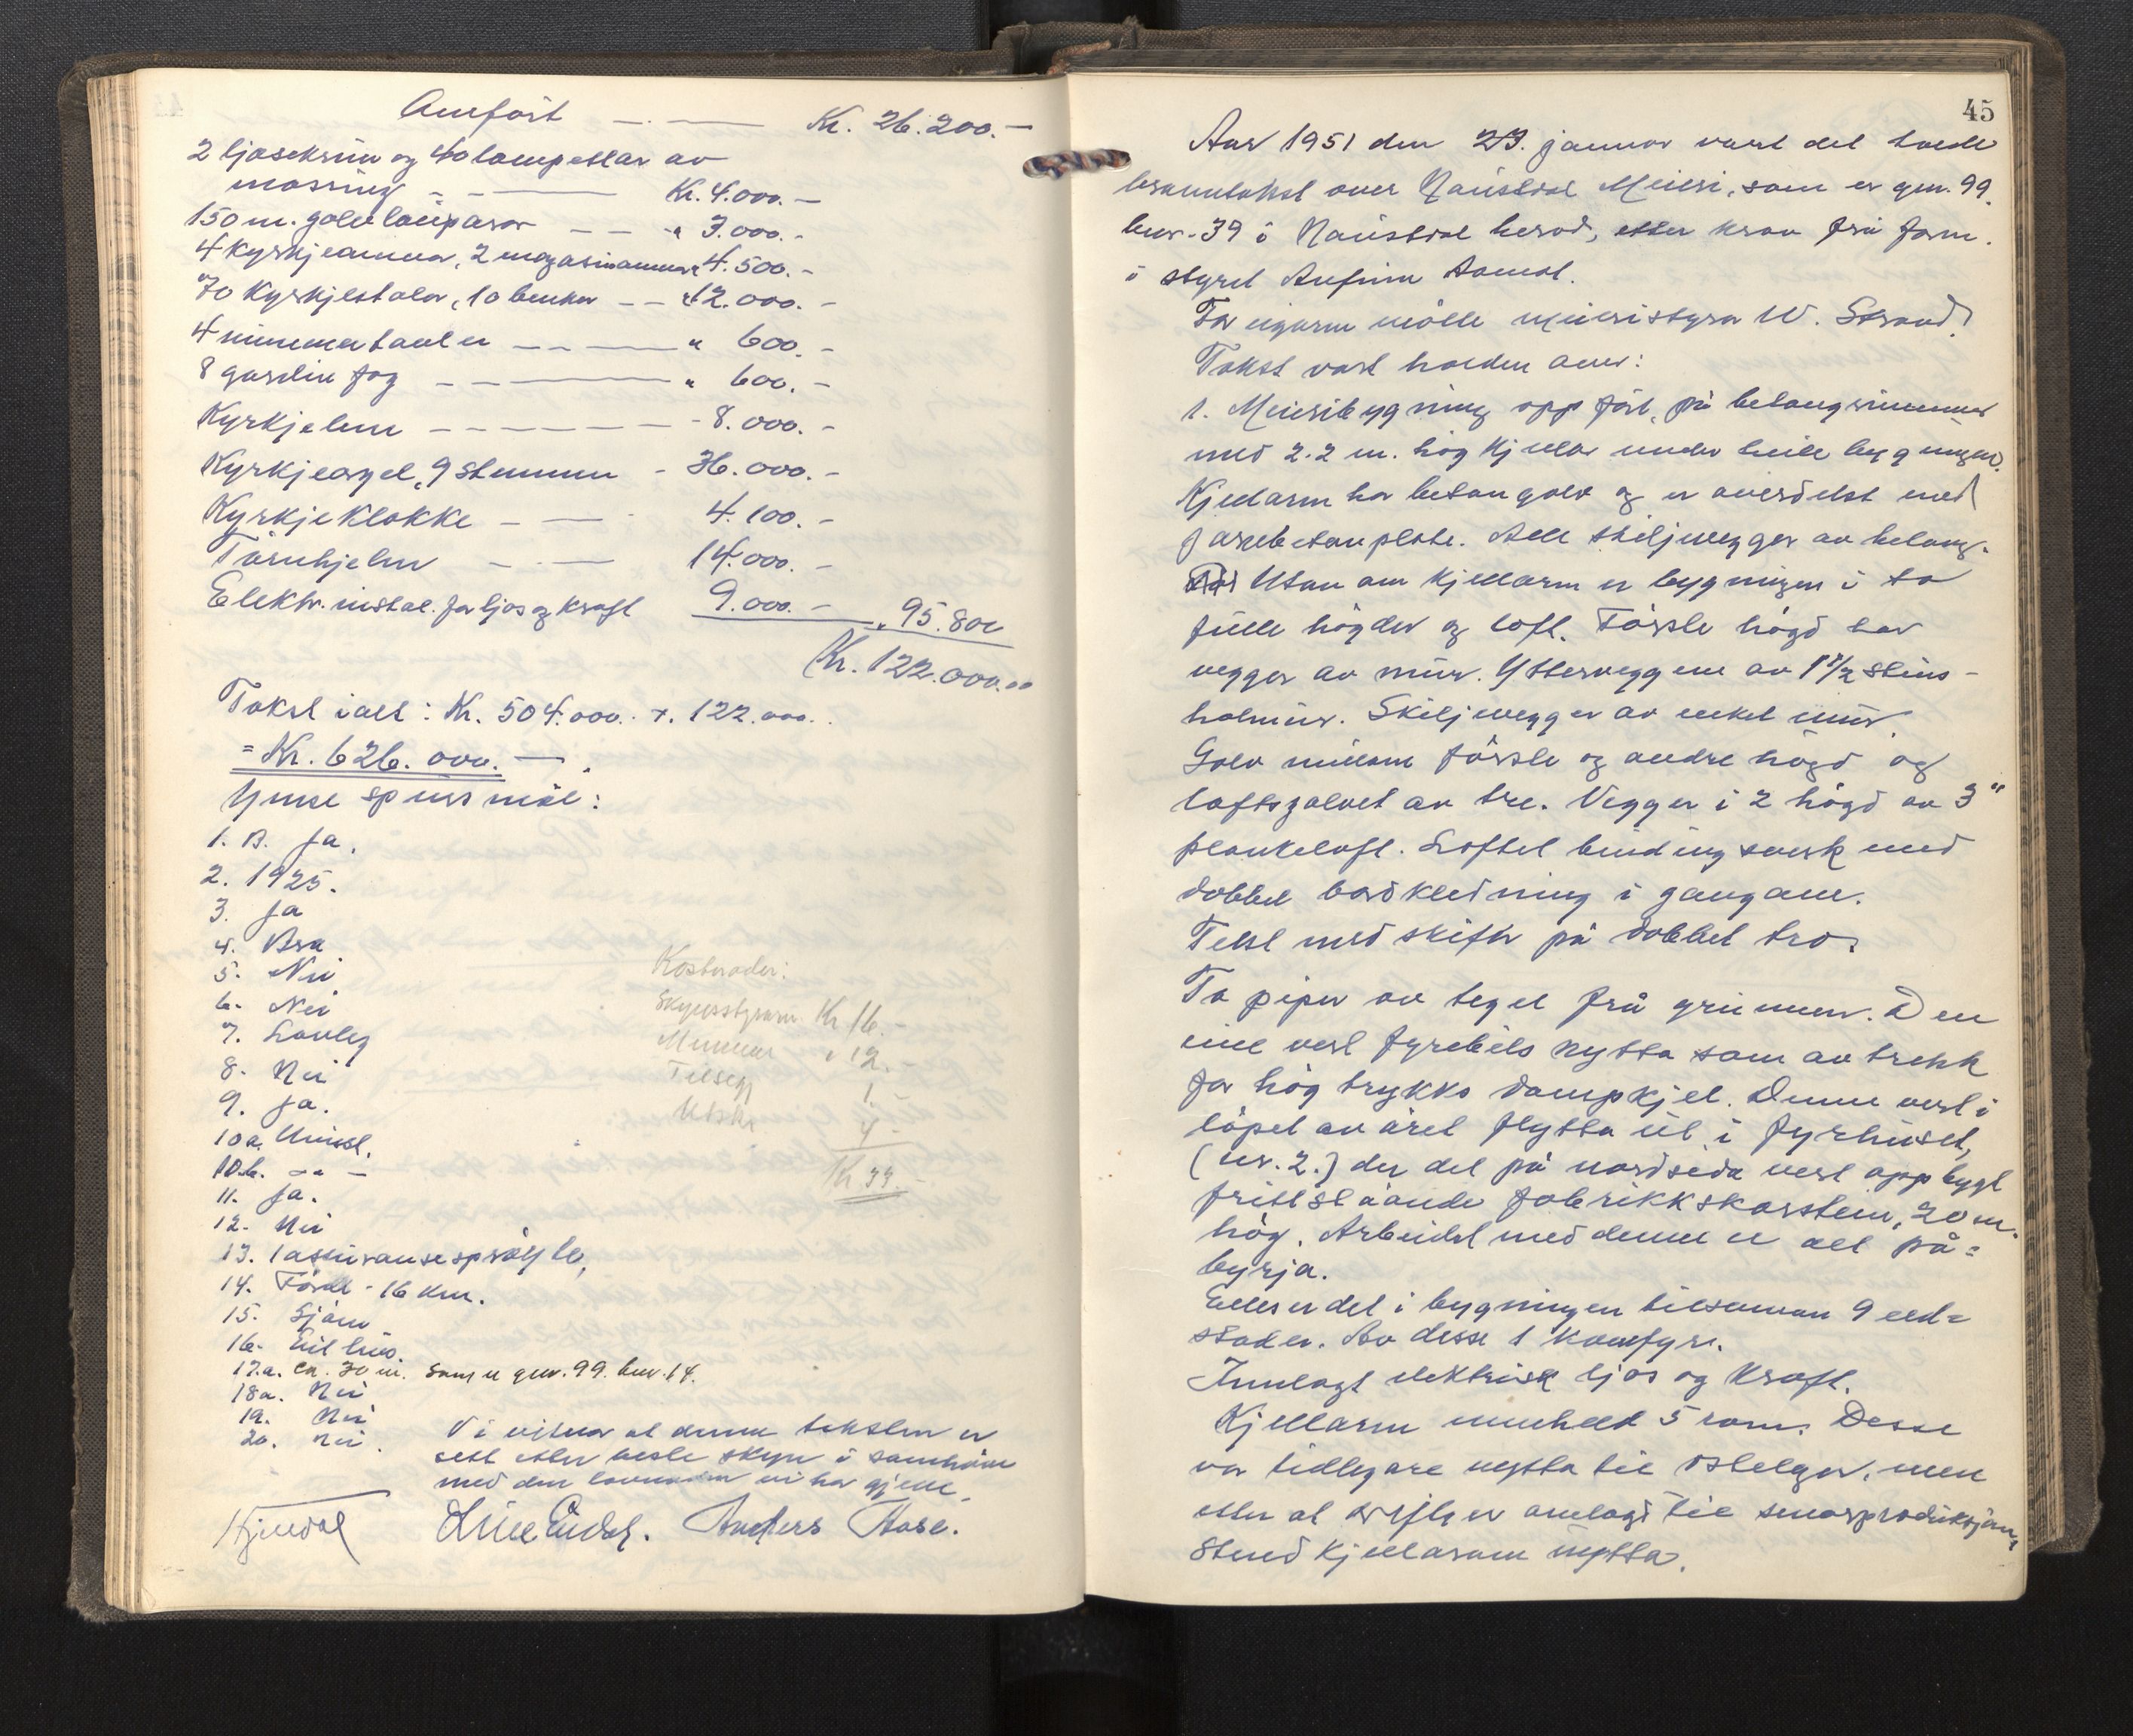 Omført — . — Kr. 26.200.—
2 ljosekrun og 40 lampettar av
messing - - — Kr. 4.000.—
150 m. golvlauparar — — " 3.000.-
4 Kyrkjeomnar, 2 magasinomnar " 4.500.-
70 Kyrkjestolar, 10 benker — — " 12.000.-
4 nummertavler — — — " 600.-
8 gardin fag — — — " 600.-
Kyrkjelm — — — — — - 8.000.-
Kyrkjeorgel, 9 stemmer - 36.000.-
Kyrkjeklokke - — · 4.100.-
Tårnhjelm — . — 14.000.-
Elektr. instal. for ljos og kraft 9.000.- " 95.800
Kr. 122.000.00
Takst i alt: Kr. 504.000.. + 122.000..
= Kr. 626.000.— .
Ymse spursmål:
1. B. Ja.
2. 1925.
3. Ja
4. Bra
5. Nei
6. Nei
7. Lovleg
8. Nei
9. Ja.
10a. Uvisst.
10.b. -"-
11. Ja.
12. Nei
13. 1 assuransesprøyte,
14. Förde - 16 km.
15. Sjøen
16. Eit hus.
17.a. ca. 70 m. som er gnr. 99. bnr. 14.
18a. Nei
19. Nei
20. nei.
Kostnader:
Skjønsstyraren Kr 16.-
Menner " 12.-
Tilsegn 1.-
Utskr 4-
Kr 33.-
Vi vitnar at denne taksten er
sett etter beste skyn i samhøve
med den lovnaden vi har gjeve.
Anders Aase.
45
Aar 1951 den 23. januar vart det halde
branntakst over Naustdal Meieri, som er gnr. 99.
bnr. 39 i Naustdal herad, etter krav frå form.
i styret Anfinn
For eigaren møtte meieristyrar W. Strand.
Takst vart halden over:
1. Meieribygning oppført på betongrunnmur
med 2.2 m. høg kjellar under heile bygningen.
Kjellaren har betongolv og er overdekt med
jarnbetonplate. Alle skiljevegger av betong.
Utan om kjellaren er bygningen i to
fulle høgder og loft. Første høgd har
vegger av mur. Ytterveggene av 1 1/2 steins-
holmur. Skiljevegger av enkel mur.
Golv millom første og andre høgd og
loftsgolvet av tre. Vegger i 2 høgd av 3"
plankeloft. Loftet bindingsverk med
dobbel bordkledning i gangane.
Tekt med skifer på dobbel tro.
To piper av tegel frå grunnen. Den
eine vert fyrebels nytta som avtrekk
for høgtrykks dampkjel. Denne vert i
løpet av året flytta ut i fyrhuset,
(nr. 2.) der det på nordsida vert oppbygt
frittståande fabrikkskorstein, 20 m.
høg. Arbeidet med denne er alt på=
byrja.
Elles er det i bygningen tilsaman 9 eld=
stader. Av desse 1 komfyr.
Innlagt elektrisk ljos og kraft.
Kjellaren inneheld 5 rom. Desse
var tidlegare nytta til ostelager, men
etter at drifta er omlagd til smørproduksjon,
stend kjellaren unytta.